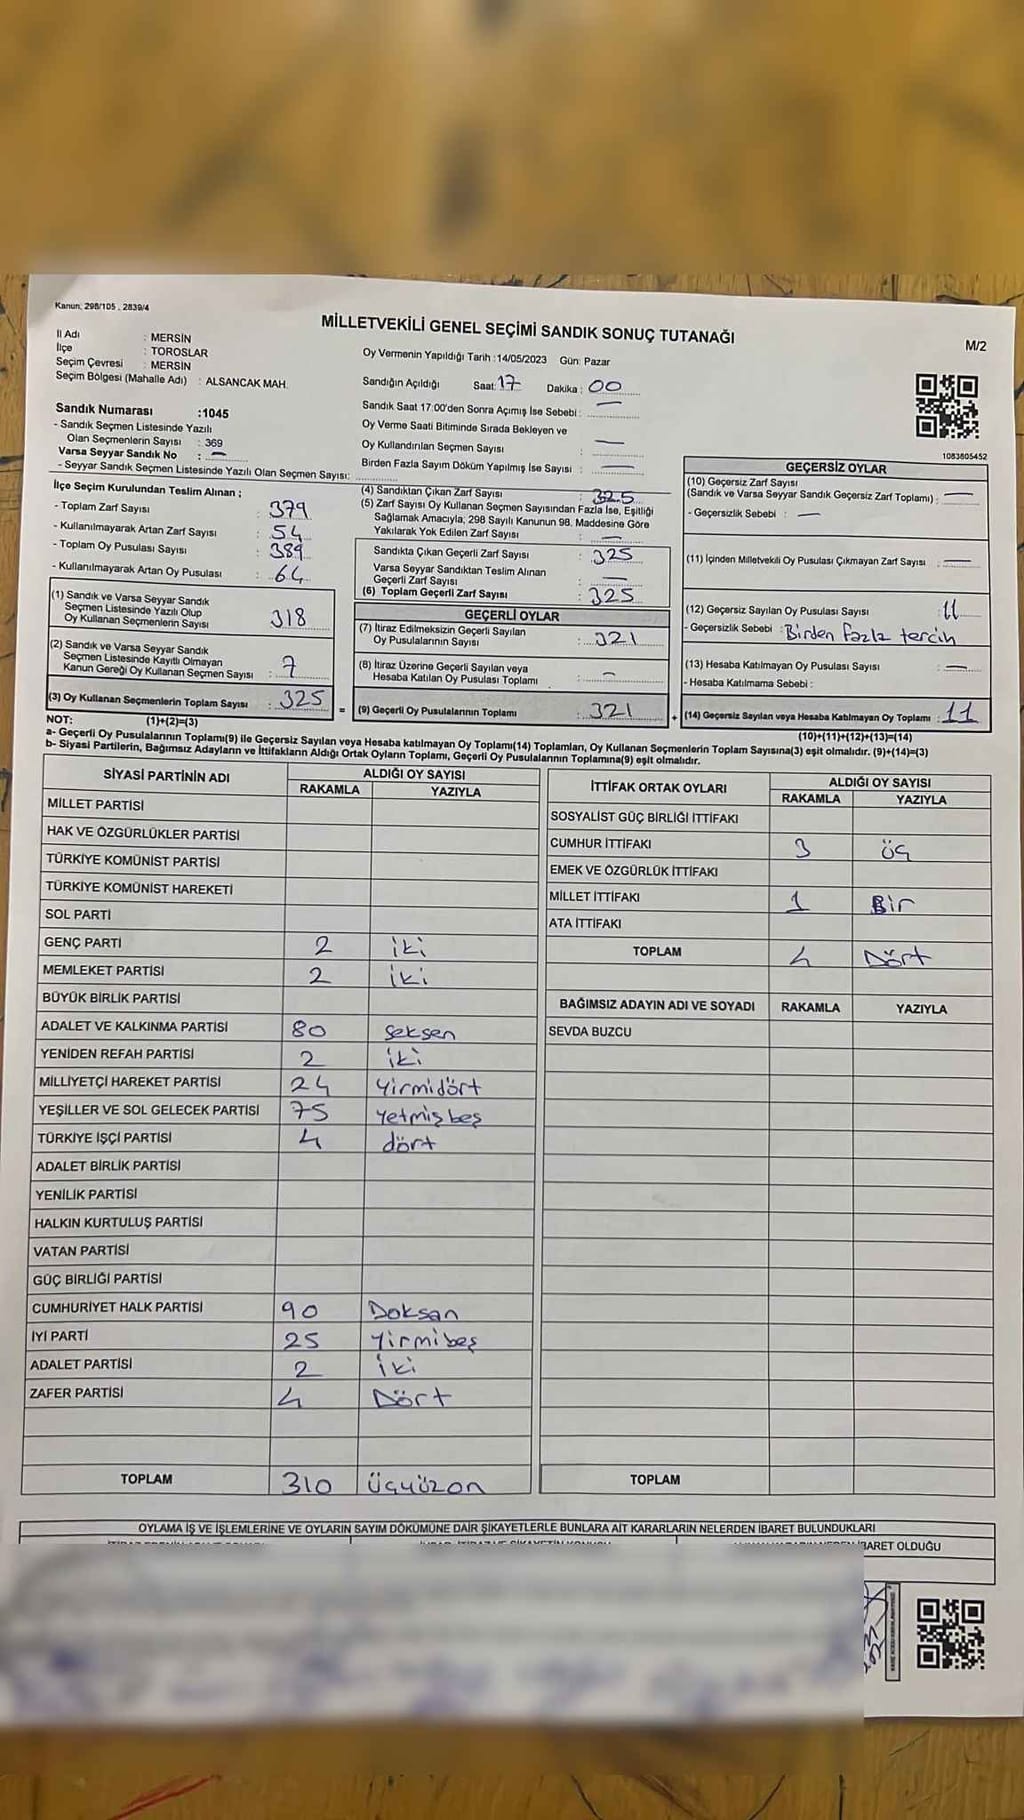 Kanun: 298/105 , 2839/4
MİLLETVEKİLİ GENEL SEÇİMİ SANDIK SONUÇ TUTANAĞI
M/2
İl Adı : MERSİN
İlçe : TOROSLAR
Seçim Çevresi : MERSİN
Seçim Bölgesi (Mahalle Adı) : ALSANCAK MAH.
Oy Vermenin Yapıldığı Tarih :14/05/2023 Gün: Pazar
Sandığın Açıldığı Saat: 17 Dakika : 00
Sandık Saat 17:00'den Sonra Açımış İse Sebebi : —
Oy Verme Saati Bitiminde Sırada Bekleyen ve
Oy Kullandırılan Seçmen Sayısı : —
Birden Fazla Sayım Döküm Yapılmış İse Sayısı : —
Sandık Numarası :1045
- Sandık Seçmen Listesinde Yazılı
Olan Seçmenlerin Sayısı : 369
Varsa Seyyar Sandık No : —
- Seyyar Sandık Seçmen Listesinde Yazılı Olan Seçmen Sayısı:
1083805452
İlçe Seçim Kurulundan Teslim Alınan ;
- Toplam Zarf Sayısı : 379
- Kullanılmayarak Artan Zarf Sayısı : 54
- Toplam Oy Pusulası Sayısı : 389
- Kullanılmayarak Artan Oy Pusulası : 64
(1) Sandık ve Varsa Seyyar Sandık
Seçmen Listesinde Yazılı Olup
Oy Kullanan Seçmenlerin Sayısı : 318
(2) Sandık ve Varsa Seyyar Sandık
Seçmen Listesinde Kayıtlı Olmayan
Kanun Gereği Oy Kullanan Seçmen Sayısı : 7
(3) Oy Kullanan Seçmenlerin Toplam Sayısı : 325
(4) Sandıktan Çıkan Zarf Sayısı : 325
(5) Zarf Sayısı Oy Kullanan Seçmen Sayısından Fazla İse, Eşitliği
Sağlamak Amacıyla, 298 Sayılı Kanunun 98. Maddesine Göre
Yakılarak Yok Edilen Zarf Sayısı : —
Sandıkta Çıkan Geçerli Zarf Sayısı : 325
Varsa Seyyar Sandıktan Teslim Alınan
Geçerli Zarf Sayısı : —
(6) Toplam Geçerli Zarf Sayısı : 325
GEÇERLİ OYLAR
(7) İtiraz Edilmeksizin Geçerli Sayılan
Oy Pusulalarının Sayısı : 321
(8) İtiraz Üzerine Geçerli Sayılan veya
Hesaba Katılan Oy Pusulası Toplamı : —
= (9) Geçerli Oy Pusulalarının Toplamı : 321
GEÇERSİZ OYLAR
(10) Geçersiz Zarf Sayısı
(Sandık ve Varsa Seyyar Sandık Geçersiz Zarf Toplamı) : —
- Geçersizlik Sebebi : —
(11) İçinden Milletvekili Oy Pusulası Çıkmayan Zarf Sayısı : —
(12) Geçersiz Sayılan Oy Pusulası Sayısı : 11
- Geçersizlik Sebebi : Birden fazla tercih
(13) Hesaba Katılmayan Oy Pusulası Sayısı : —
- Hesaba Katılmama Sebebi :
+ (14) Geçersiz Sayılan veya Hesaba Katılmayan Oy Toplamı : 11
NOT: (1)+(2)=(3)
(10)+(11)+(12)+(13)=(14)
a- Geçerli Oy Pusulalarının Toplamı(9) ile Geçersiz Sayılan veya Hesaba katılmayan Oy Toplamı(14) Toplamları, Oy Kullanan Seçmenlerin Toplam Sayısına(3) eşit olmalıdır. (9)+(14)=(3)
b- Siyasi Partilerin, Bağımsız Adayların ve İttifakların Aldığı Ortak Oyların Toplamı, Geçerli Oy Pusulalarının Toplamına(9) eşit olmalıdır.
SİYASİ PARTİNİN ADI ALDIĞI OY SAYISI
RAKAMLA YAZIYLA
MİLLET PARTİSİ
HAK VE ÖZGÜRLÜKLER PARTİSİ
TÜRKİYE KOMÜNİST PARTİSİ
TÜRKİYE KOMÜNİST HAREKETİ
SOL PARTİ
GENÇ PARTİ 2 iki
MEMLEKET PARTİSİ 2 iki
BÜYÜK BİRLİK PARTİSİ
ADALET VE KALKINMA PARTİSİ 80 seksen
YENİDEN REFAH PARTİSİ 2 iki
MİLLİYETÇİ HAREKET PARTİSİ 24 Yirmidört
YEŞİLLER VE SOL GELECEK PARTİSİ 75 Yetmişbeş
TÜRKİYE İŞÇİ PARTİSİ 4 dört
ADALET BİRLİK PARTİSİ
YENİLİK PARTİSİ
HALKIN KURTULUŞ PARTİSİ
VATAN PARTİSİ
GÜÇ BİRLİĞİ PARTİSİ
CUMHURİYET HALK PARTİSİ 90 Doksan
İYİ PARTİ 25 Yirmibeş
ADALET PARTİSİ 2 iki
ZAFER PARTİSİ 4 Dört
TOPLAM 310 Üçyüzon
İTTİFAK ORTAK OYLARI ALDIĞI OY SAYISI
RAKAMLA YAZIYLA
SOSYALİST GÜÇ BİRLİĞİ İTTİFAKI
CUMHUR İTTİFAKI 3 üç
EMEK VE ÖZGÜRLÜK İTTİFAKI
MİLLET İTTİFAKI 1 Bir
ATA İTTİFAKI
TOPLAM 4 Dört
BAĞIMSIZ ADAYIN ADI VE SOYADI RAKAMLA YAZIYLA
SEVDA BUZCU
TOPLAM
OYLAMA İŞ VE İŞLEMLERİNE VE OYLARIN SAYIM DÖKÜMÜNE DAİR ŞİKAYETLERLE BUNLARA AİT KARARLARIN NELERDEN İBARET BULUNDUKLARI
İBARET OLDUĞU